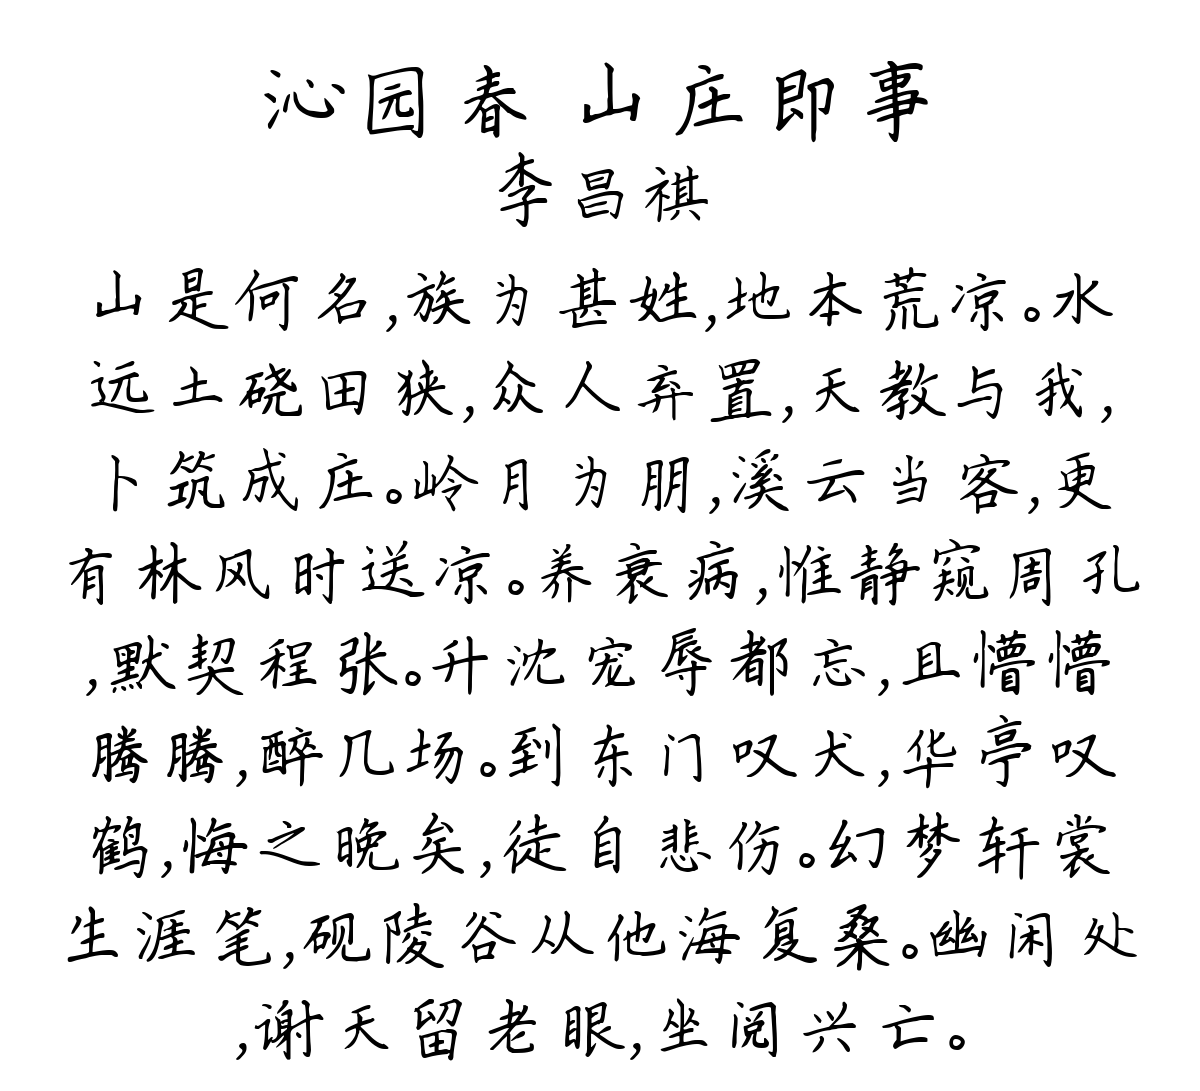 沁园春 山庄即事
李昌祺
山是何名,族为甚姓,地本荒凉。水
远土硗田狭,众人弃置,天教与我,
卜筑成庄。岭月为朋,溪云当客,更
有林风时送凉。养衰病,惟静窥周孔
,默契程张。升沈宠辱都忘,且懵懵
腾腾,醉几场。到东门叹犬,华亭叹
鹤,悔之晚矣,徒自悲伤。幻梦轩裳
生涯笔,砚陵谷从他海复桑。幽闲处
,谢天留老眼,坐阅兴亡。